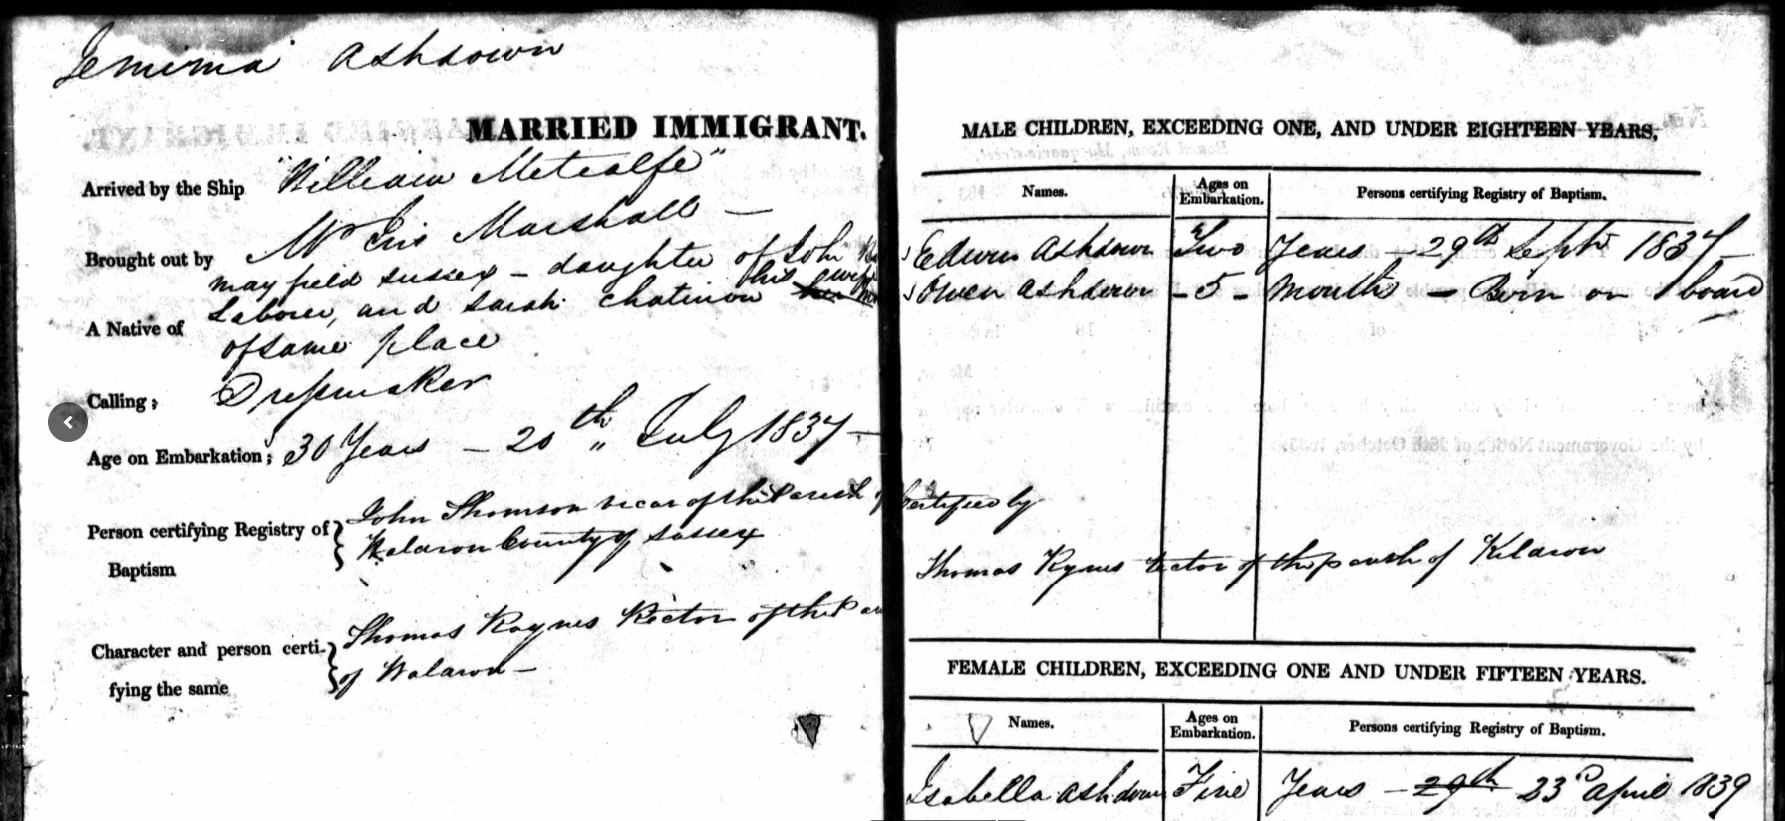 Jemima Ashdown
MARRIED IMMIGRANT.
Arrived by the Ship "William Metcalfe"
Brought out by Marshall —
mayfield Sussex — daughter of John
Laborer, and Sarah his
A Native of
of same place
Calling; Dressmaker
Age on Embarkation; 30 Years — 20th July 1837 —
Person certifying Registry of Baptism } John Thomson vicar of the Parish of
County of Sussex
Character and person certifying the same } Thomas Raynes Rector of the
of Walaron —
MALE CHILDREN, EXCEEDING ONE, AND UNDER EIGHTEEN YEARS,
Names. Ages on Embarkation. Persons certifying Registry of Baptism.
Edwin Ashdown Two Years — 29th Septr 1837
Owen Ashdown — 5 — Months — Born on board
Certified by
Thomas Rynes rector of the parish of
FEMALE CHILDREN, EXCEEDING ONE AND UNDER FIFTEEN YEARS.
Names. Ages on Embarkation. Persons certifying Registry of Baptism.
Isabella Ashdown Five Years — 29th 23d April 1839